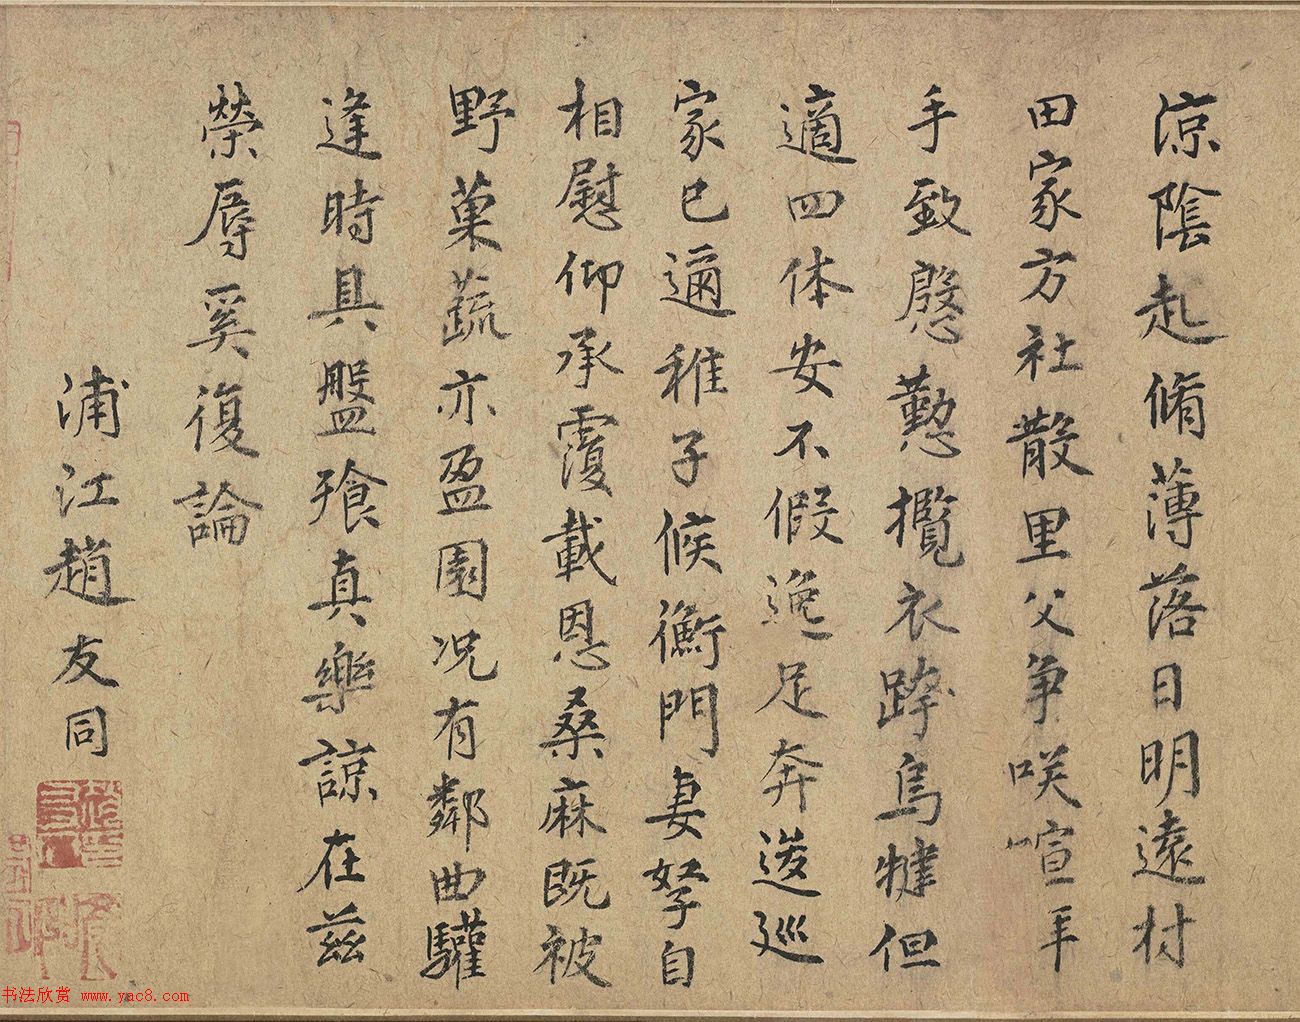 涼陰起脩薄落日明遠村
田家方社散里父争咲喧手
手致慇懃攬衣跨烏犍但
適四体安不假逸足奔逡巡
家已邇稚子候衡門妻孥自
相慰仰承覆載恩桑麻既被
野菓蔬亦盈園况有鄰曲驩
逢時具盤飱真樂諒在兹
榮辱奚復論
浦江趙友同
书法欣赏 www.yac8.com